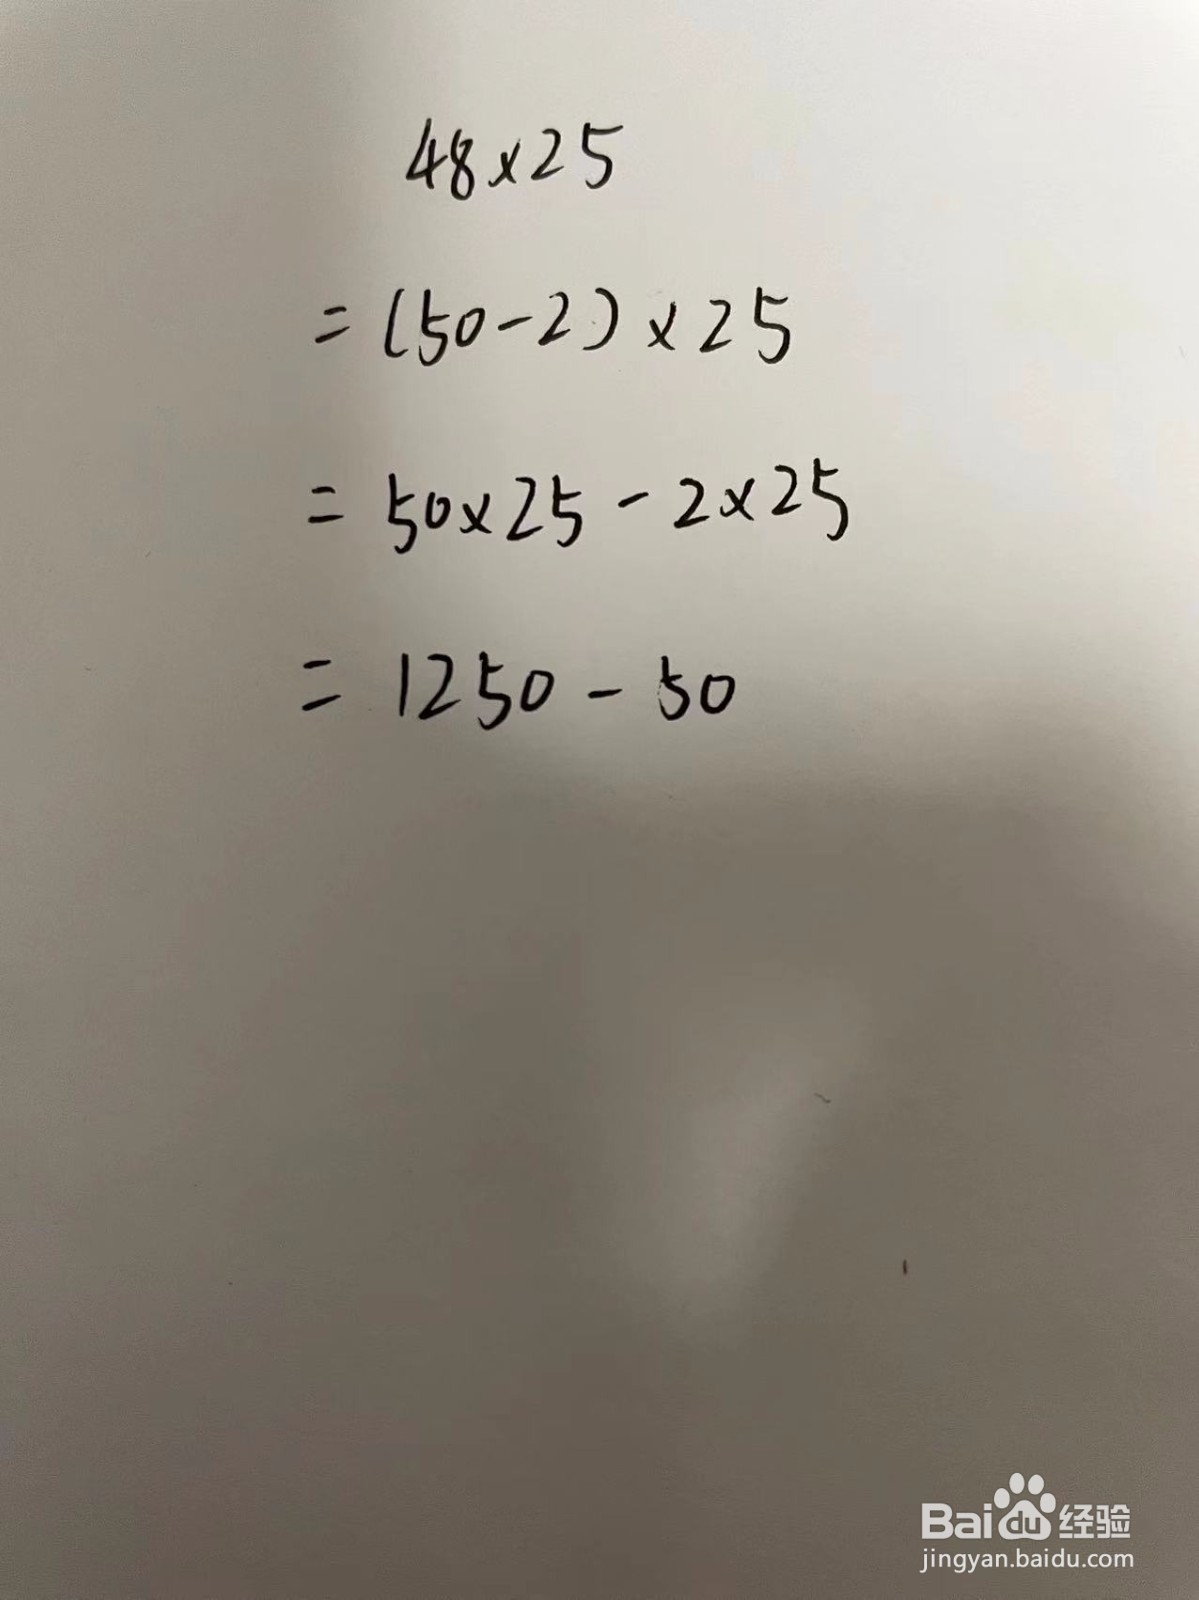 48×25
=(50-2)×25
=50×25-2×25
=1250-50
Baidu经验
jingyan.baidu.com